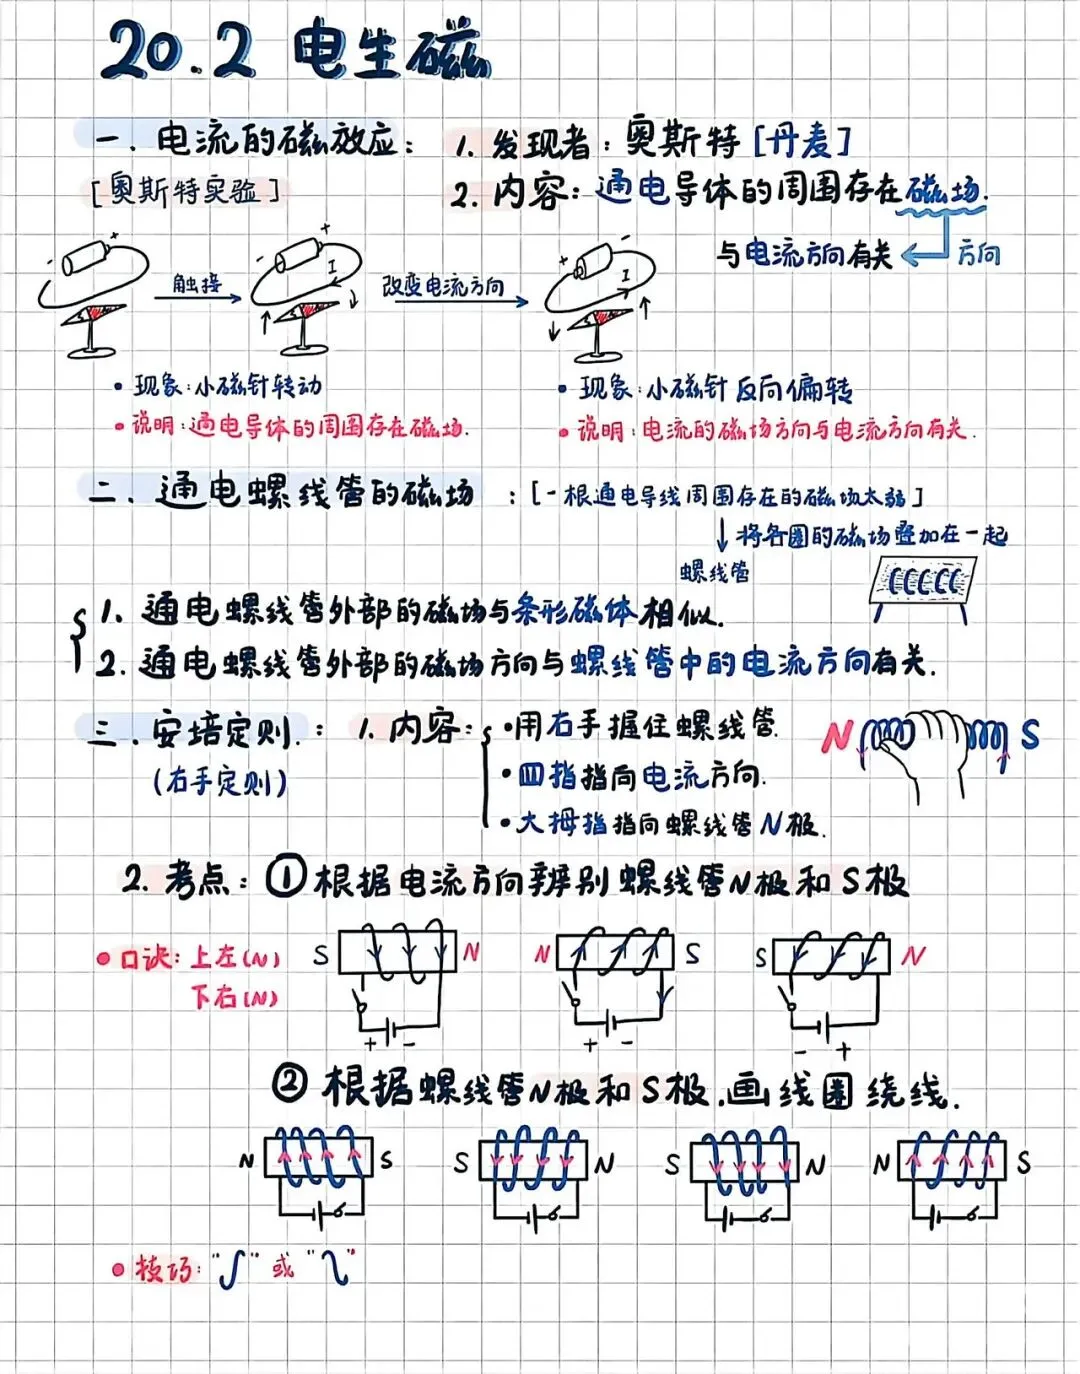 20.2 电生磁
一、电流的磁效应： 1. 发现者：奥斯特 [丹麦]
[奥斯特实验]
2. 内容：通电导体的周围存在磁场.
与电流方向有关 ← 方向
- + 触接 + - I 改变电流方向 + - I
• 现象：小磁针转动
• 说明：通电导体的周围存在磁场.
• 现象：小磁针反向偏转
• 说明：电流的磁场方向与电流方向有关.
二、通电螺线管的磁场：[一根通电导线周围存在的磁场太弱]
↓将各圈的磁场叠加在一起
螺线管
1. 通电螺线管外部的磁场与条形磁体相似.
2. 通电螺线管外部的磁场方向与螺线管中的电流方向有关.
三、安培定则.： 1. 内容：
(右手定则)
• 用右手握住螺线管.
• 四指指向电流方向.
• 大拇指指向螺线管N极.
N S
2. 考点：① 根据电流方向辨别螺线管N极和S极
• 口诀：上左(N)
下右(N)
S N N S S N
+ - + - - +
② 根据螺线管N极和S极.画线圈绕线.
N S S N S N N S
• 技巧：“ʃ”或“ʅ”